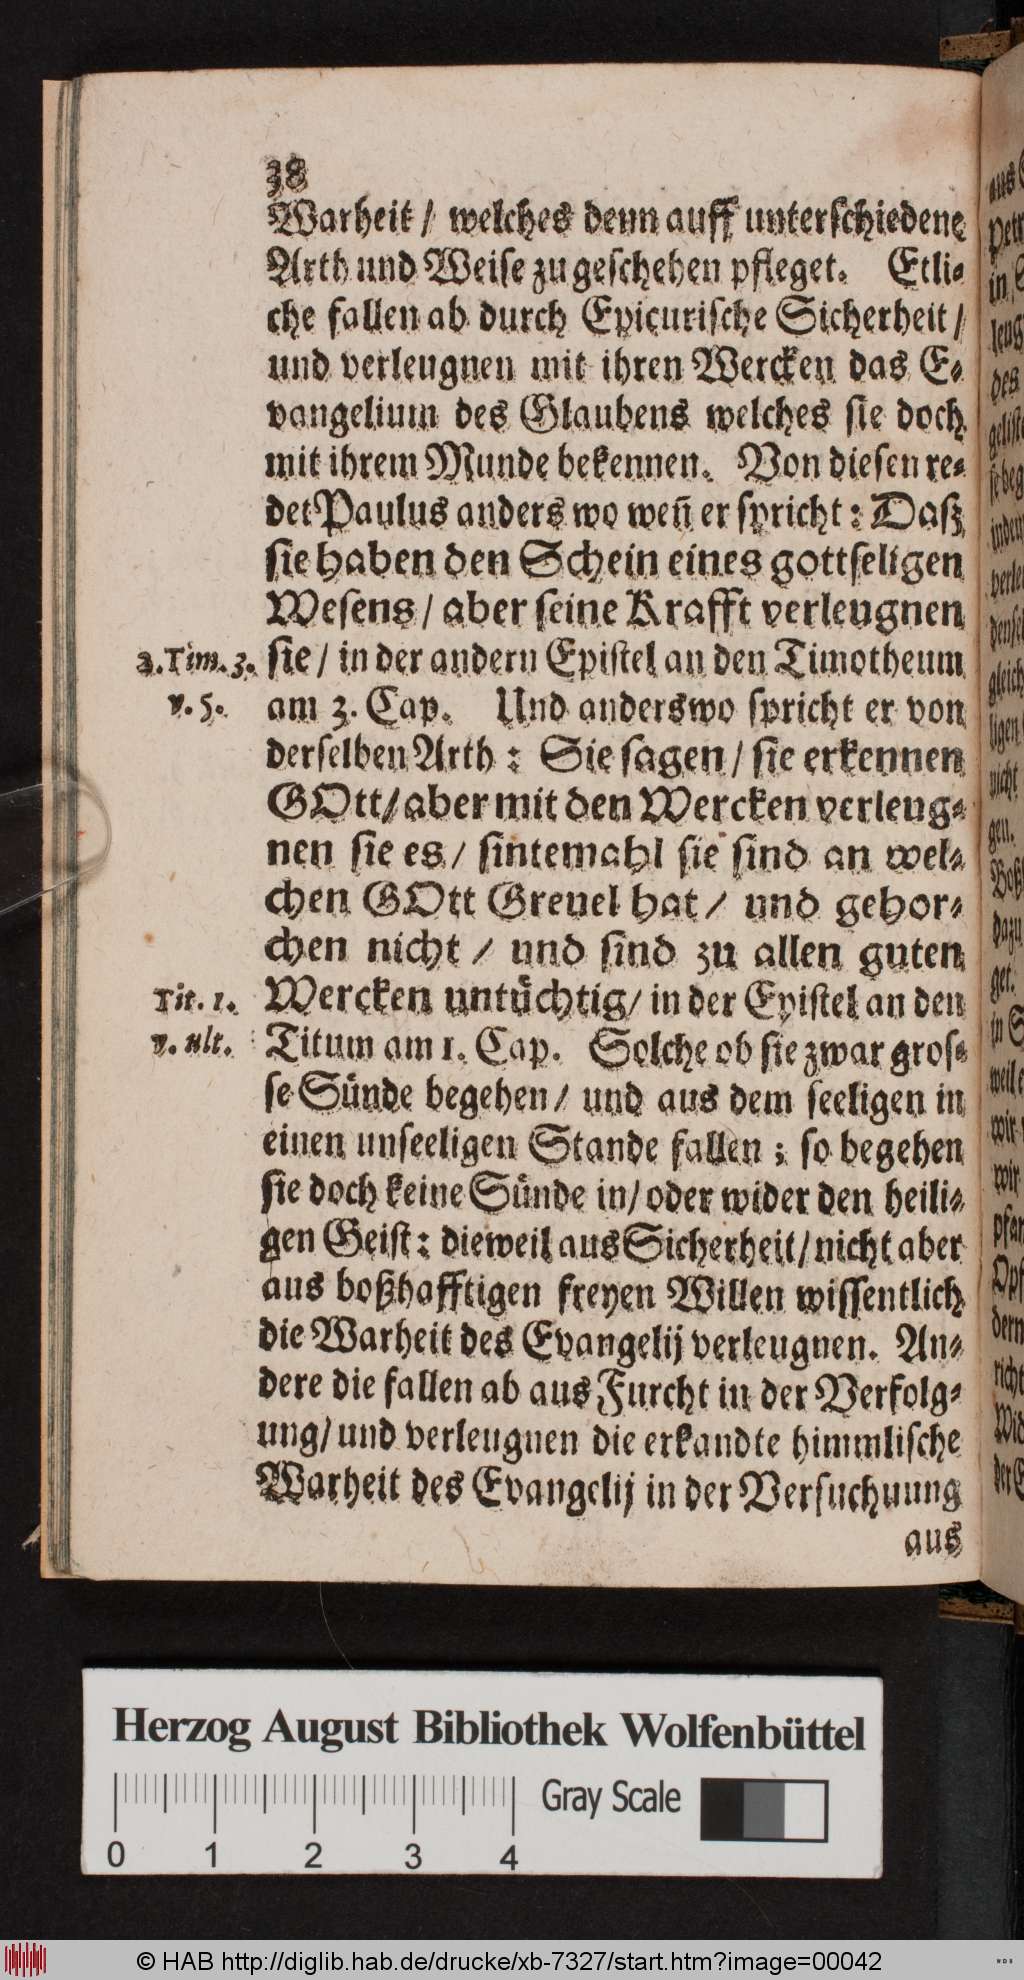 38
Warheit / welches denn auff unterschiedene
Arth und Weise zu geschehen pfleget. Etli-
che fallen ab durch Epicurische Sicherheit /
und verleugnen mit ihren Wercken das E-
vangelium des Glaubens welches sie doch
mit ihrem Munde bekennen. Von diesen re-
det Paulus anders wo weñ er spricht: Daß
sie haben den Schein eines gottseligen
Wesens / aber seine Krafft verleugnen
2. Tim. 3. sie / in der andern Epistel an den Timotheum
v. 5. am 3. Cap. Und anderswo spricht er von
derselben Arth: Sie sagen / sie erkennen
GOtt / aber mit den Wercken verleug-
nen sie es / sintemahl sie sind an wel-
chen GOtt Greuel hat / und gehor-
chen nicht / und sind zu allen guten
Tit. 1. Wercken untüchtig / in der Epistel an den
v. ult. Titum am 1. Cap. Solche ob sie zwar gros-
se Sünde begehen / und aus dem seeligen in
einen unseeligen Stande fallen; so begehen
sie doch keine Sünde in / oder wider den heili-
gen Geist: dieweil aus Sicherheit / nicht aber
aus boßhafftigen freyen Willen wissentlich
die Warheit des Evangelij verleugnen. An-
dere die fallen ab aus Furcht in der Verfolg-
ung / und verleugnen die erkandte himmlische
Warheit des Evangelij in der Versuchuung
aus
Herzog August Bibliothek Wolfenbüttel
Gray Scale
0 1 2 3 4
© HAB http://diglib.hab.de/drucke/xb-7327/start.htm?image=00042